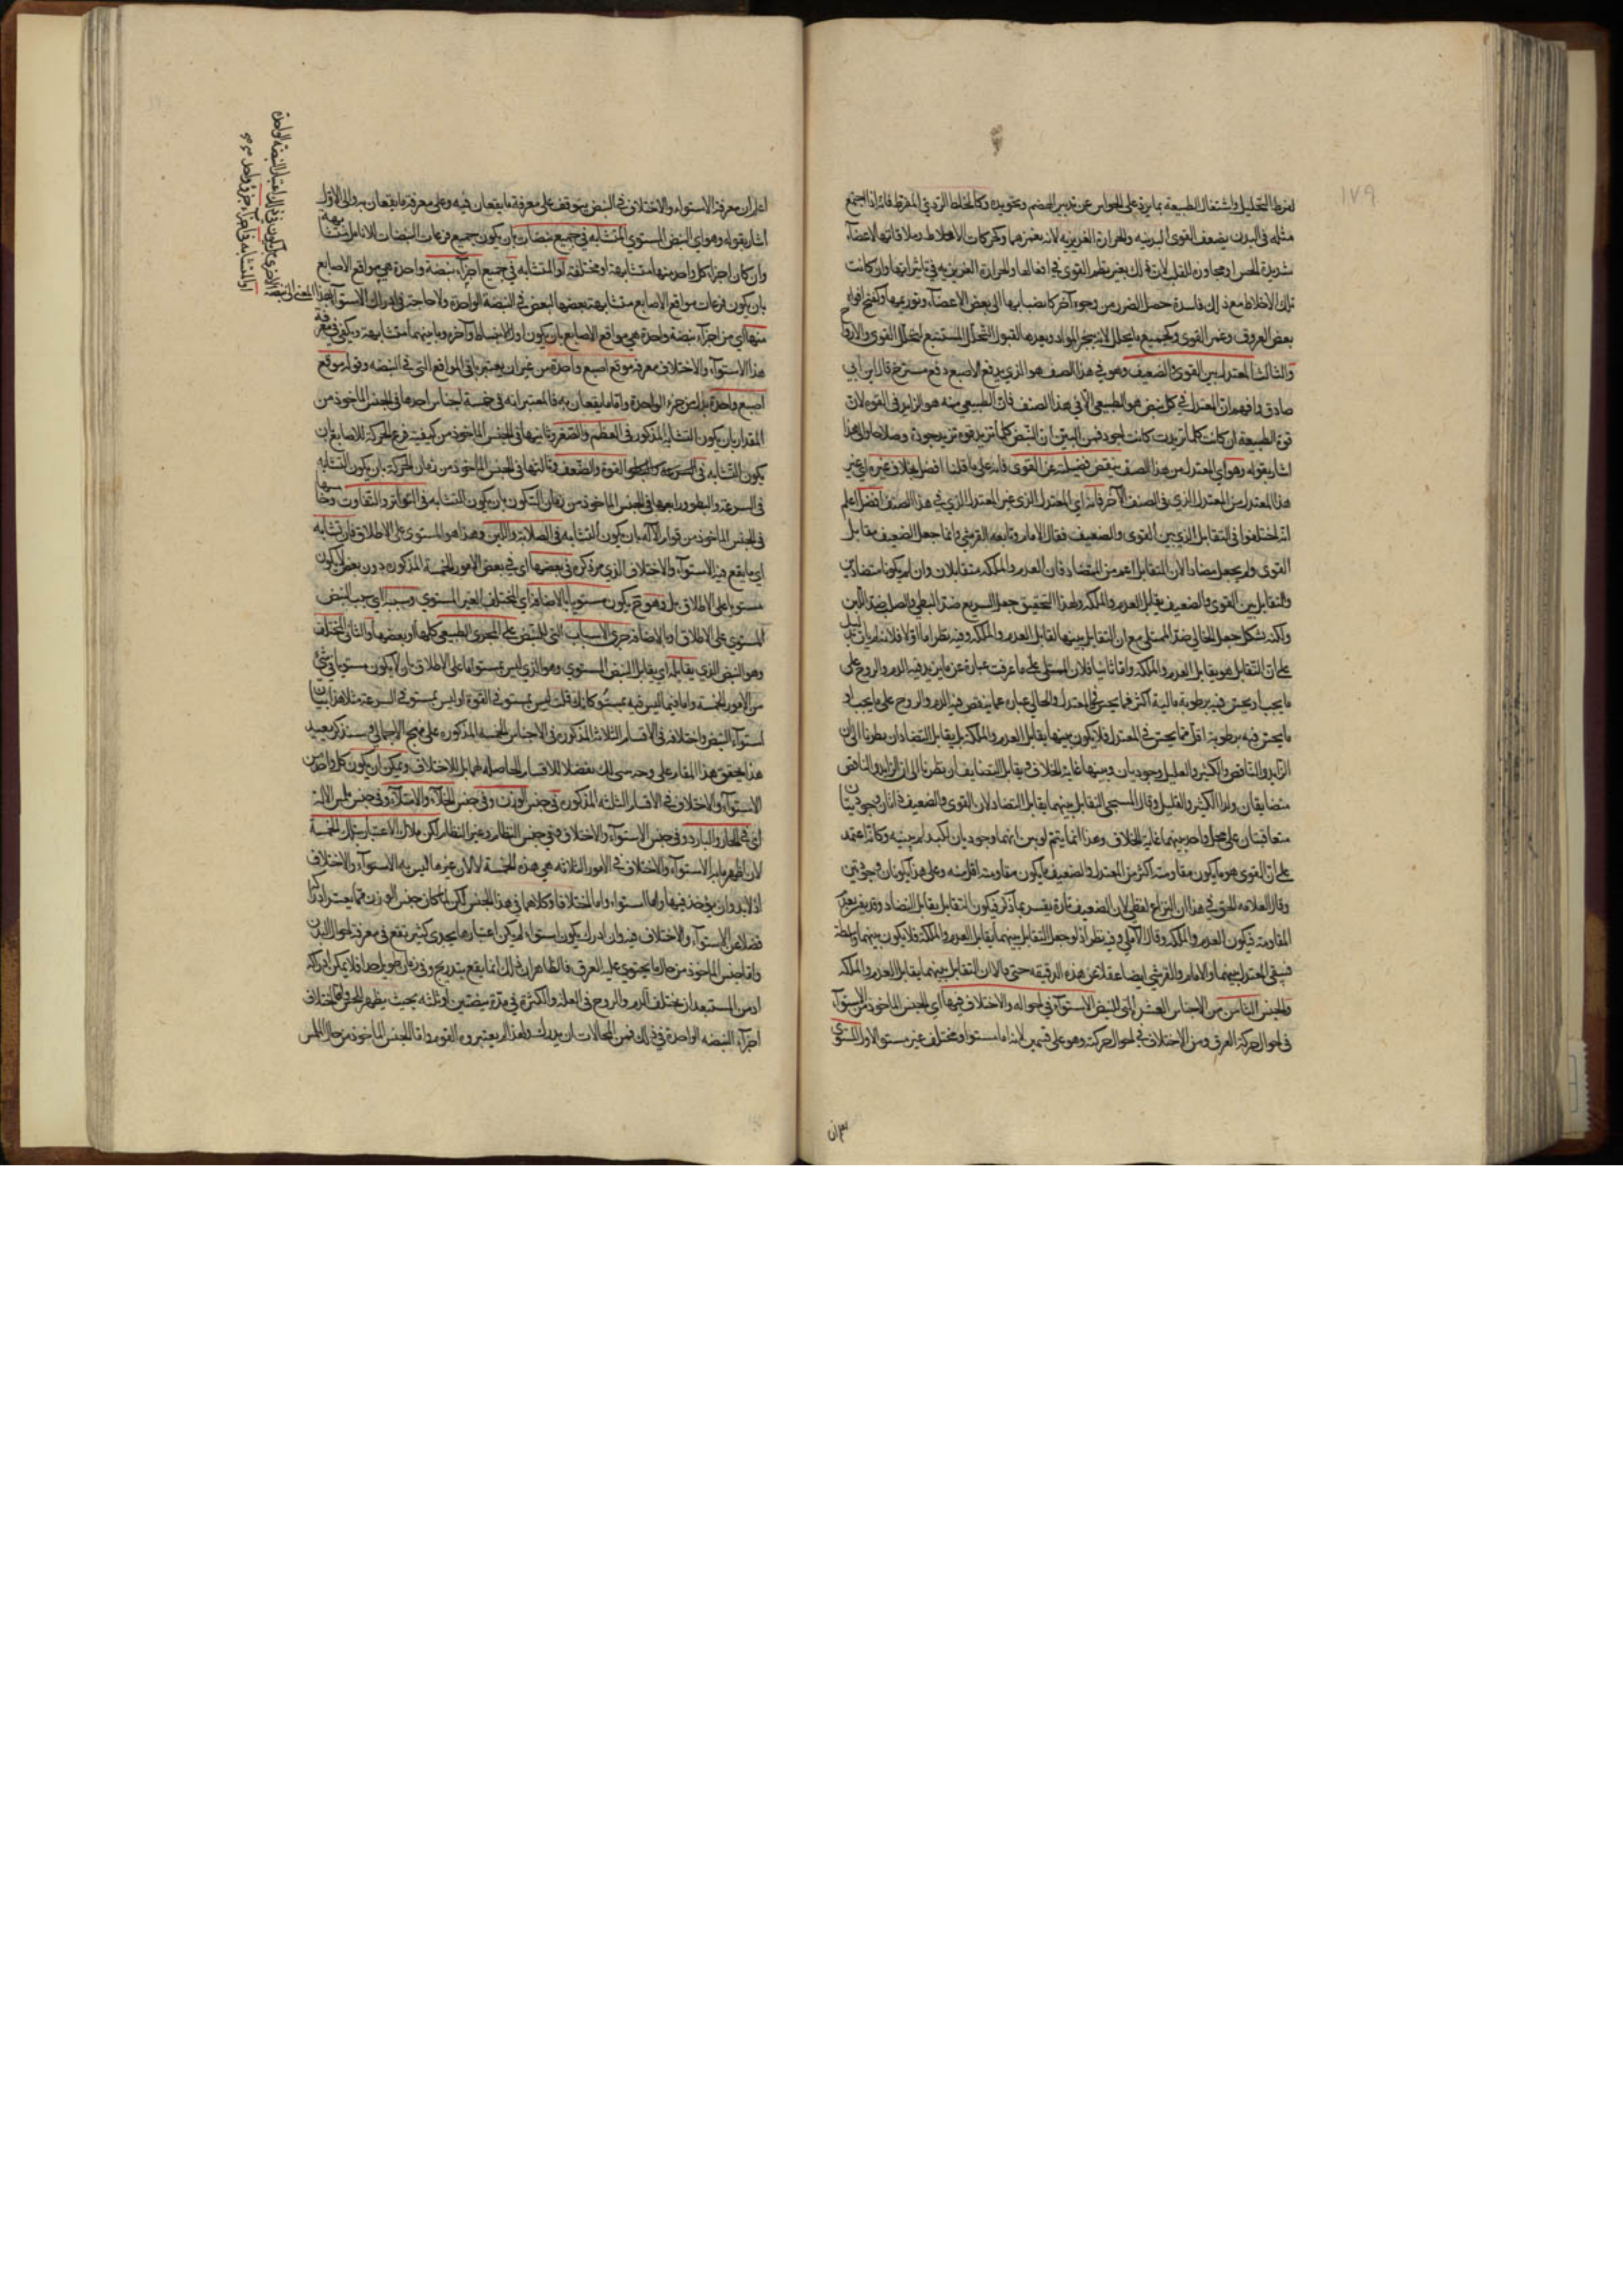 ١٧٩
لفرط التحليل واشتغال الطبيعة بما يرد على الحواس عن تدبير الهضم وتجويده وكالخلط الردئ المفرط فانه اذا اجتمع
مثله فى البدن يضعف القوى البدنيه والحرارة الغريزيه لانه يغمرهما وكحركات الاخلاط وملاقاتها لاعضاء
شديدة الحس او مجاورة للقلب لان ذلك يغير نظم القوى فى افعالها والحرارة الغريزيه فى تاثيراتها وان كانت
تلك الاخلاط مع ذلك فاسدة حصل الضرر من وجوه آخر كانصبابها الى بعض الاعضاء وتوريمها وكفتح افواه
بعض العروق وغمر القوى وكجميع ما يحلل لانه يبخر المواد ويعدها لقبول التحلل المستتبع لتحلل القوى والارواح
والثالث المعتدل بين القوى والضعيف وهو فى هذا الصنف هو الذى يدفع الاصبع دفع متوسط قال ابن ابى
صادق وافهم ان المعتدل فى كل نبض هو الطبيعى الا فى هذا الصنف فان الطبيعى منه هو الزايد فى القوه لان
قوة الطبيعة ان كانت كلما تزيدت كانت اجود فمن البين ان النبض كلما تزيد قوه تزيد جودة وصلاحا ولهذا
اشار بقوله وهو اى المعتدل من هذا الصنف ينقص فضيلته عن القوى فانه على ما قلنا افضل بخلاف غيره اى غير
هذا المعتدل من المعتدل الذى فى الصنف الآخر فانه اى المعتدل الذى غير المعتدل الذى فى هذا الصنف افضل اعلم
انه اختلفوا فى التقابل الذى بين القوى والضعيف فقال الامام وتابعه القرشى انما جعل الضعيف مقابل
القوى ولم يجعل مضادا لان المتقابل اعم من المتضاد فان العدم والملكه متقابلان وان لم يكونا متضادين
والتقابل بين القوى والضعيف تقابل العدم والملكه ولهذا التحقيق جعل السريع ضد البطى والصلب ضد اللين
ولكنه يشكل جعل الخالى ضد الممتلى مع ان التقابل بينهما تقابل العدم والملكه وفيه نظر اما اولا فلانه لم يات بدليل
على ان التقابل هو تقابل العدم والملكه واما ثانيا فلان الممتلى على ما عرفت عبارة عن ما يزيد فيه الدم والروح على
ما يجب او يحس فيه برطوبة مالية اكثر مما يحس فى المعتدل والخالى عباره عما ينقص فيه الدم والروح على ما يجب او
ما يحس فيه برطوبة اقل مما يحس فى المعتدل فلا يكون بينهما تقابل العدم والملكه بل تقابل التضاد ان نظرنا الى ان
الزايد والناقص والكثير والقليل وجوديان وبينهما غاية الخلاف وتقابل التضايف ان نظرنا الى ان الزايد والناقص
متضايفان وكذا الكثير والقليل وقال المسيحى التقابل بينهما تقابل التضاد لان القوى والضعيف ذاتان وجوديتان
متعاقبتان على محل واحد بينهما غاية الخلاف وهذا انما يتم لو بين انهما وجوديان لكنه لم يبينه وكانه اعتمد
على ان القوى هو ما يكون مقاومته اكثر من المعتدل والضعيف ما يكون مقاومته اقل منه وعلى هذا يكونان وجوديتين
وقال العلامه الحق فى هذا ان النزاع لفظى لان الضعيف تارة يفسر بما ذكر فيكون التقابل تقابل التضاد وقد يفسر بعدم
المقاومة فيكون العدم والملكه وقال الاملى وفيه نظر اذ لو جعل التقابل بينهما تقابل العدم والملكة فلا يكون بينهما واسطة
فبقى المعتدل بينهما والامام والقرشى ايضا غفلا عن هذه الدقيقه حتى قالا ان التقابل بينهما تقابل العدم والملكه
والجنس الثامن من الاجناس العشر التى للنبض الاستواء فى احواله والاختلاف فيها اى الجنس الماخوذ من الاستواء
فى احوال حركة العرق ومن الاختلاف فى احوال حركته وهو على قسمين لانه اما مستو او مختلف غير مستو الاول المستوى
اعلم ان معرفة الاستواء والاختلاف فى النبض يتوقف على معرفة ما يقعان فيه وعلى معرفة ما يقعان به والى الاول
اشار بقوله وهو اى النبض المستوى المتشابه فى جميع نبضات بان يكون جميع قرعات النبضات للانامل متشابهة
وان كان اجزاء كل واحد منها متشابهة او مختلفة او المتشابه فى جميع اجزاء نبضة واحدة هى مواقع الاصابع
بان يكون قرعات مواقع الاصابع متشابهة بعضها لبعض فى النبضة الواحدة ولا حاجة فى ادراك الاستواء
منها اى من اجزاء نبضة واحدة هى مواقع الاصابع بان يكون اول الانبساط وآخره وما بينهما متشابهة ويكفى فى معرفة
هذا الاستواء والاختلاف معرفة موقع اصبع واحدة من غير ان يعتبر باقى المواقع التى فى النبضه وقوله موقع
اصبع واحدة بدل من جزء الواحدة واما ما يقعان به فالمعتبر انه فى خمسة اجناس احدها فى الجنس الماخوذ من
المقدار بان يكون التشابه المذكور فى العظم والصغر وثانيها فى الجنس الماخوذ من كيفية قرع الحركة للاصابع بان
يكون التشابه فى القوة والضعف وثالثها فى الجنس الماخوذ من زمان الحركة بان يكون التشابه
فى السرعة والبطو ورابعها فى الجنس الماخوذ من زمان السكون بان يكون التشابه فى التواتر والتفاوت وخامسها
فى الجنس الماخوذ من قوام الآله بان يكون التشابه فى الصلابة واللين وهذا هو المستوى على الاطلاق فان تشابه
اى ما يقع فيه الاستواء والاختلاف الذى مر ذكره فى بعضها اى فى بعض الامور الخمسة المذكوره دون بعض لا يكون
مستويا على الاطلاق بل وهو يكون مستويا بالاضافة اى المختلف الغير المستوى وسببه اى سبب النبض
المستوى على الاطلاق او بالاضافة جرى الاسباب التى للنبض على المجرى الطبيعى كلها او بعضها والثانى المختلف
وهو النبض الذى يقابله اى يقابل النبض المستوى وهو الذى ليس بمستو اما على الاطلاق بان لا يكون مستويا فى شئ
من الامور الخمسة واما فيما ليس فيه بمستو كما انك قلت ليس بمستو فى القوة او ليس بمستو فى السرعة مثلا هذا بيان
استواء النبض واختلافه فى الاقسام الثلاثة المذكورة فى الاجناس الخمسة المذكورة على منهج الاجمال وسنذكر بعيد
هذا تحقيق هذا المقام على وجه يبين لك مفصلا للاقسام الحاصله لهما بل للاختلاف ويمكن ان يكون كل واحد من
الاستواء والاختلاف فى الاقسام الثلثة المذكوره فى جنس الوزن وفى جنس الخلاء والامتلاء وفى جنس ملمس الآلة
اى فى الحار والبارد وفى جنس الاستواء والاختلاف وفى جنس النظام وغير النظام لكن ملاك الاعتبار بتلك الخمسة
لان اظهر ما به الاستواء والاختلاف فى الامور الثلاثه هى هذه الخمسة لا لان غيرها ليس به الاستواء والاختلاف
اذ لا بد وان يوجد فيها اما استواء واما اختلافا وكلاهما فى هذا الجنس لكن لما كان جنس الوزن مما يعسر ادراكه
فضلا عن الاستواء والاختلاف فيه وان ادرك يكون استواء لم يكن اعتبارها يجدى كثير نفع فى معرفة احوال البدن
واما جنس الماخوذ من حال ما يحتوى عليه العرق فالظاهر ان ذلك انما يقع بتدريج وفى زمان طويل جدا فلا يمكن ادراكه
اذ من المستبعد ان يختلف الدم والروح فى القلة والكثرة فى مدة نبضتين او ثلثه بحيث يظهر للحس واما اختلاف
اجزاء النبضه الواحدة فى ذلك فمن المحالات ان يدرك ولهذا لم يعتبروه القوم واما الجنس الماخوذ من حال الملمس
او المتشابه فى اجزاء جزء واحد